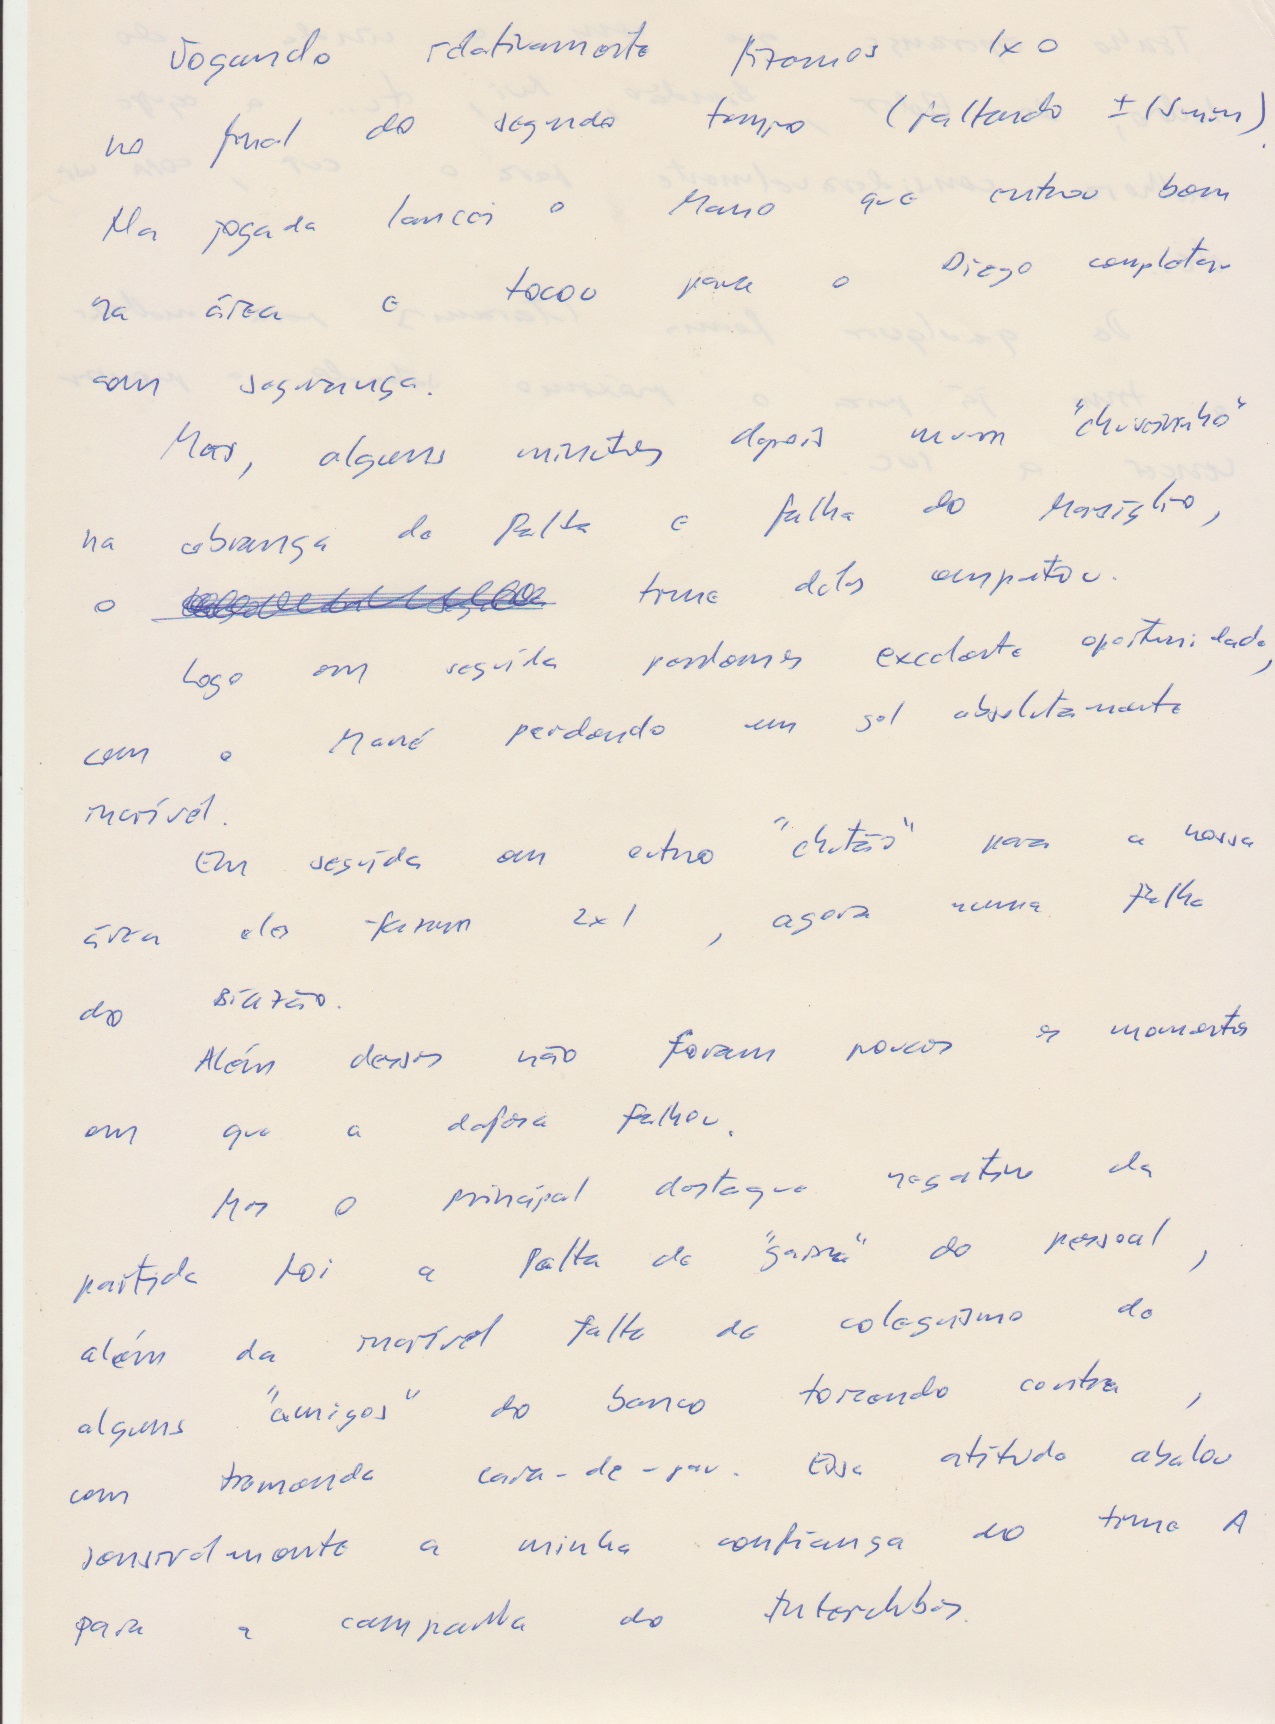 Jogando relativamente fizemos 1x0
no final do segundo tempo (faltando ± 15 min).
Na jogada lancei o Mano que entrou bem
na área e tocou para o Diego completar
com segurança.
Mas, alguns minutos depois num "chuveirinho"
na cobrança de falta e falha do Marsiglio,
o time deles empatou.
Logo em seguida perdemos excelente oportunidade,
com o Mané perdendo um gol absolutamente
incrível.
Em seguida em outro "chutão" para a nossa
área eles fizeram 2x1, agora numa falha
do Biazão.
Além desses não foram poucos os momentos
em que a defesa falhou.
Mas o principal destaque negativo da
partida foi a falta de "garra" do pessoal,
além da incrível falta de coleguismo de
alguns "amigos" do banco torcendo contra,
com tremenda cara-de-pau. Essa atitude abalou
sensivelmente a minha confiança no time A
para a campanha do Interclubes.